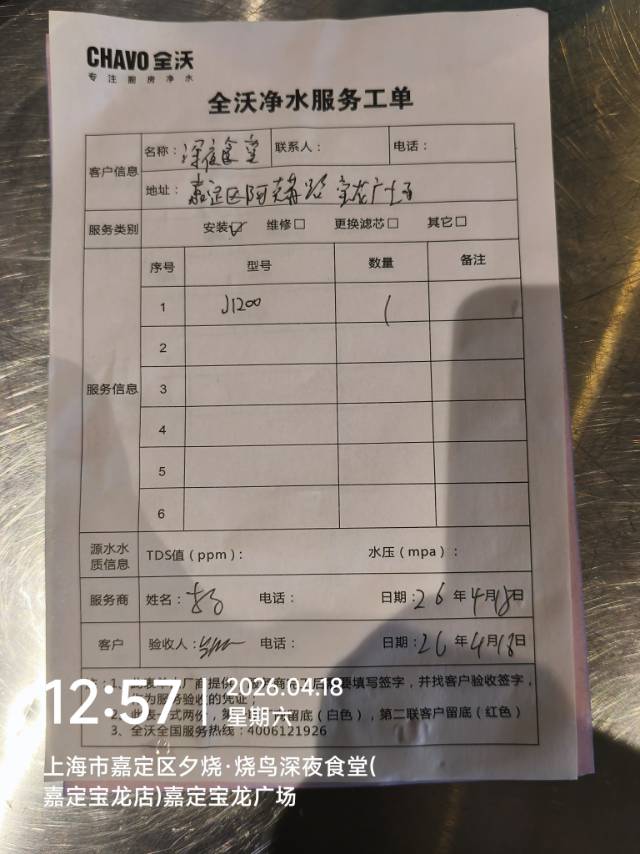 CHAVO 全沃
专注厨房净水
全沃净水服务工单
客户信息 名称：深夜食堂 联系人： 电话：
地址：嘉定区阿克苏路宝龙广场
服务类别 安装☑ 维修□ 更换滤芯□ 其它□
服务信息 序号 型号 数量 备注
1 J1200 1
2
3
4
5
6
源水水质信息 TDS值（ppm）： 水压（mpa）：
服务商 姓名： 电话： 日期：26年4月18日
客户 验收人： 电话： 日期：26年4月18日
填写签字，并找客户验收签字，
为服务验收的凭证；
留底（白色），第二联客户留底（红色）
3、全沃全国服务热线：4006121926
12:57 2026.04.18
星期六
上海市嘉定区夕烧·烧鸟深夜食堂(
嘉定宝龙店)嘉定宝龙广场